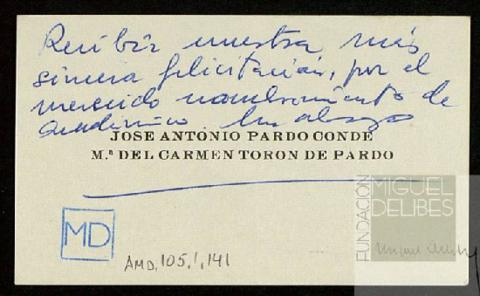 Recibir nuestra más
sincera felicitación, por el
merecido nombramiento de
académico. Un abrazo
JOSE ANTONIO PARDO CONDE
M.ª DEL CARMEN TORON DE PARDO
FUNDACIÓN
MIGUEL
DELIBES
MD
AMD, 105, 1, 141